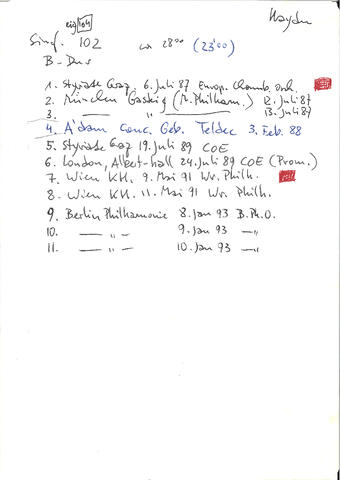 Haydn
eig 104
Sinf. 102 ca 28°° (23'00)
B-Dur
1. Styriate Graz 6. Juli 87 Europ. Chamb. Orch.
2. München Gasteig (M. Philharm.) 12. Juli 87
3. — " — 13. Juli 87
4. A'dam Conc. Geb. Teldec 3. Feb. 88
5. Styriate Graz 19. Juli 89 COE
6. London, Albert-hall 24. Juli 89 COE (Prom.)
7. Wien KH. 9. Mai 91 Wr. Philh.
8. Wien KH. 11. Mai 91 Wr. Philh.
9. Berlin Philharmonie 8. Jan 93 B.Ph.O.
10. — " — 9. Jan 93 — " —
11. — " — 10. Jan 93 — " —